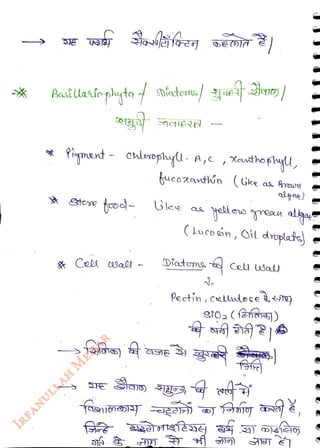 → यह पदार्थ सैक्सीटॉक्सिन कहलाते हैं/
* Basillariophyta / Diatoms / सुनहरी शैवाल /
समुद्री जवाहरात -
* Pigment - chlorophyll - A, C, xanthophyll,
fucoxanthin (Like as Brown algae)
* Store food - Like as yellow green algae
(Lucosin, Oil droplets)
* Cell wall - Diatoms की Cell wall
↓
Pectin, cellulose के साथ
SiO2 (सिलिका)
की बनी होती है/
→ सिलिका की वजह से खुरदरी भित्ति
→ यह शैवाल समुद्र की तली में
विशालकाय चट्टानों का निर्माण करती है,
जिन्हें अर्थ या
के नाम से भी जाना जाता है/
IRFANULLAH